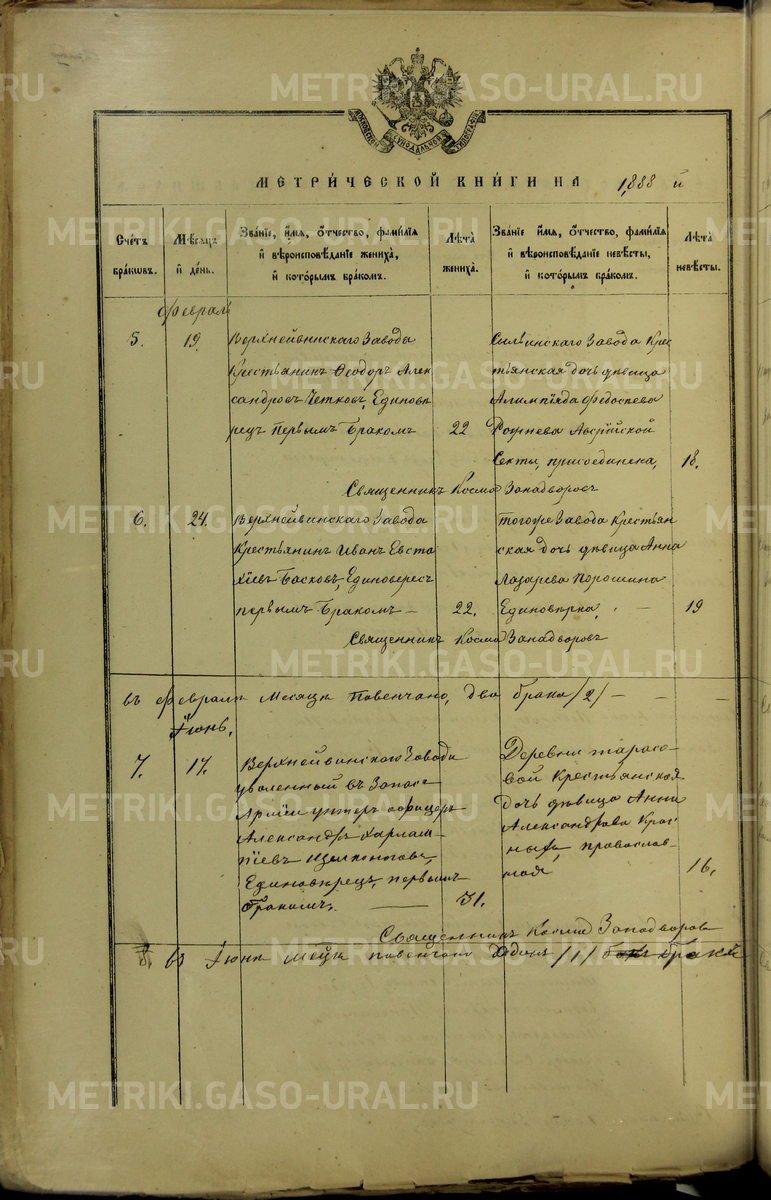 METRIKI.GASO-URAL.RU
МОСКОВСКОЙ СѴНОДАЛЬНОЙ ТИПОГРАФІИ
МЕТРИ́ЧЕСКОЙ КНИ́ГИ НА 1888 й
Сче́тъ бра́кωвъ.
Мѣ́сѧцъ и҆ де́нь.
Зва́нїе, и҆́мѧ, ѻ҆́тчество, фамѝлїѧ и҆ вѣроисповѣ́данїе жениха̀, и҆ кото́рымъ бра́комъ.
Лѣ́та жениха̀.
Зва́нїе и҆́мѧ, ѻ҆́тчество, фамѝлїѧ и҆ вѣроисповѣ́данїе невѣ́сты, и҆ кото́рымъ бра́комъ.
Лѣ́та невѣ́сты.
Февраль
5.
19.
Верхнейвинскаго Завода
Крестьянинъ Ѳеодоръ Алек
сандровъ Четковъ, Единовѣ
рецъ первымъ бракомъ
22
Завода Крес
тьянская дочь дѣвица
Алимпіяда Федосѣева
Австрійской
Секты, присоединена,
18.
Священникъ Косма Западворовъ
6.
24.
Верхнейвинскаго Завода
Крестьянинъ Иванъ Евста
хіевъ Басковъ, Единоверецъ
первымъ бракомъ –
22.
тогоже Завода Крестьян
ская дочь дѣвица Анна
Лазарева Порошина
Единовѣрка, –
19
Священникъ Косма Западворовъ
въ Февралѣ Месяцѣ повенчано, два брака /2/ – – –
Іюнь.
7.
17.
Верхнейвинскаго Завода
уволенный въ Запасъ
Арміи унтеръ офицеръ
Александръ Харлам
піевъ
Единовѣрецъ, первымъ
бракомъ. –
31.
Деревни Тарасо-
вой Крестьянская
дочь дѣвица Анна
Александрова Крас
ныхъ, православ-
ная
16.
Священникъ Косма Западворовъ
8. въ Іюнѣ мецѣ повенчано Одинъ /1/ бракъ